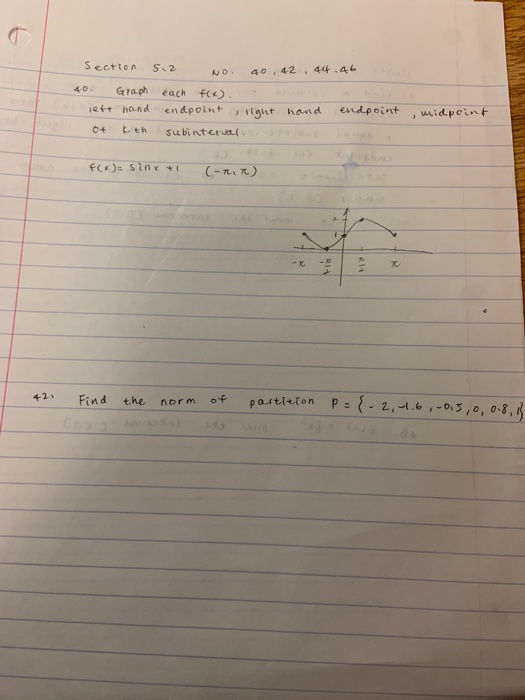 Section 5.2 NO. 40, 42, 44, 46
40. Graph each f(x).
left hand endpoint, right hand endpoint, midpoint
of kth subinterval.
f(x)= sinx +1 (-π, π)
2
1
-π -π/2 π/2 π
42. Find the norm of partition P = {-2, -1.6, -0.5, 0, 0.8, 1}